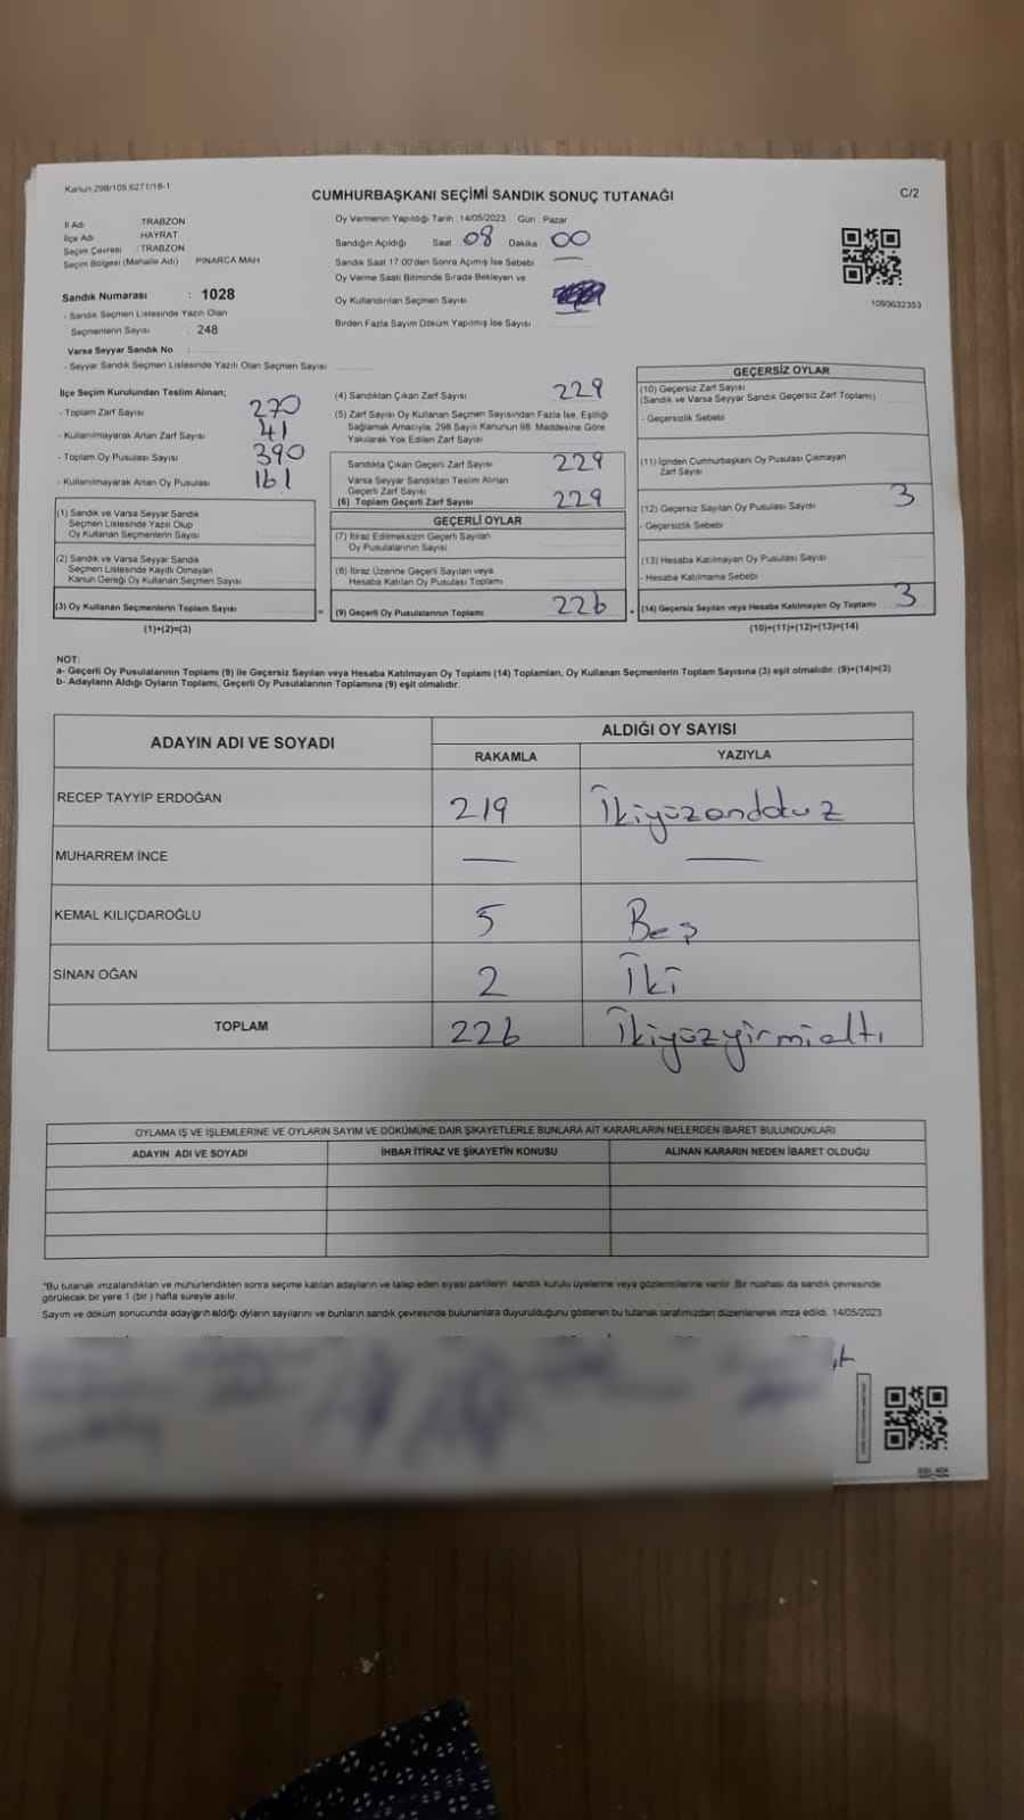 Kanun 298/105,6271/18-1
CUMHURBAŞKANI SEÇİMİ SANDIK SONUÇ TUTANAĞI
C/2
İl Adı TRABZON
İlçe Adı HAYRAT
Seçim Çevresi : TRABZON
Seçim Bölgesi (Mahalle Adı) PINARCA MAH
Sandık Numarası : 1028
- Sandık Seçmen Listesinde Yazılı Olan
Seçmenlerin Sayısı : 248
Varsa Seyyar Sandık No :
- Seyyar Sandık Seçmen Listesinde Yazılı Olan Seçmen Sayısı
Oy Vermenin Yapıldığı Tarih : 14/05/2023 Gün : Pazar
Sandığın Açıldığı Saat 08 Dakika 00
Sandık Saat 17:00'den Sonra Açılmış İse Sebebi —
Oy Verme Saati Bitiminde Sırada Bekleyen ve
Oy Kullandırılan Seçmen Sayısı
Birden Fazla Sayım Döküm Yapılmış İse Sayısı
1093632353
İlçe Seçim Kurulundan Teslim Alınan;
- Toplam Zarf Sayısı 270
- Kullanılmayarak Artan Zarf Sayısı 41
- Toplam Oy Pusulası Sayısı 390
- Kullanılmayarak Artan Oy Pusulası 161
(1) Sandık ve Varsa Seyyar Sandık
Seçmen Listesinde Yazılı Olup
Oy Kullanan Seçmenlerin Sayısı
(2) Sandık ve Varsa Seyyar Sandık
Seçmen Listesinde Kayıtlı Olmayan
Kanun Gereği Oy Kullanan Seçmen Sayısı
(3) Oy Kullanan Seçmenlerin Toplam Sayısı =
(1)+(2)=(3)
(4) Sandıktan Çıkan Zarf Sayısı 229
(5) Zarf Sayısı Oy Kullanan Seçmen Sayısından Fazla İse, Eşitliği
Sağlamak Amacıyla, 298 Sayılı Kanunun 98. Maddesine Göre
Yakılarak Yok Edilen Zarf Sayısı
Sandıkta Çıkan Geçerli Zarf Sayısı 229
Varsa Seyyar Sandıktan Teslim Alınan
Geçerli Zarf Sayısı
(6) Toplam Geçerli Zarf Sayısı 229
GEÇERLİ OYLAR
(7) İtiraz Edilmeksizin Geçerli Sayılan
Oy Pusulalarının Sayısı
(8) İtiraz Üzerine Geçerli Sayılan veya
Hesaba Katılan Oy Pusulası Toplamı
(9) Geçerli Oy Pusulalarının Toplamı 226
GEÇERSİZ OYLAR
(10) Geçersiz Zarf Sayısı
(Sandık ve Varsa Seyyar Sandık Geçersiz Zarf Toplamı)
- Geçersizlik Sebebi
(11) İçinden Cumhurbaşkanı Oy Pusulası Çıkmayan
Zarf Sayısı
(12) Geçersiz Sayılan Oy Pusulası Sayısı 3
- Geçersizlik Sebebi
(13) Hesaba Katılmayan Oy Pusulası Sayısı
- Hesaba Katılmama Sebebi
(14) Geçersiz Sayılan veya Hesaba Katılmayan Oy Toplamı 3
(10)+(11)+(12)+(13)=(14)
NOT:
a- Geçerli Oy Pusulalarının Toplamı (9) ile Geçersiz Sayılan veya Hesaba Katılmayan Oy Toplamı (14) Toplamları, Oy Kullanan Seçmenlerin Toplam Sayısına (3) eşit olmalıdır. (9)+(14)=(3)
b- Adayların Aldığı Oyların Toplamı, Geçerli Oy Pusulalarının Toplamına (9) eşit olmalıdır.
ADAYIN ADI VE SOYADI
ALDIĞI OY SAYISI
RAKAMLA YAZIYLA
RECEP TAYYİP ERDOĞAN 219 İkiyüzondokuz
MUHARREM İNCE — —
KEMAL KILIÇDAROĞLU 5 Beş
SİNAN OĞAN 2 İki
TOPLAM 226 İkiyüzyirmialtı
OYLAMA İŞ VE İŞLEMLERİNE VE OYLARIN SAYIM VE DÖKÜMÜNE DAİR ŞİKAYETLERLE BUNLARA AİT KARARLARIN NELERDEN İBARET BULUNDUKLARI
ADAYIN ADI VE SOYADI İHBAR İTİRAZ VE ŞİKAYETİN KONUSU ALINAN KARARIN NEDEN İBARET OLDUĞU
*Bu tutanak imzalandıktan ve mühürlendikten sonra seçime katılan adayların ve talep eden siyasi partilerin sandık kurulu üyelerine veya gözlemcilerine verilir. Bir nüshası da sandık çevresinde
görülecek bir yere 1 (bir) hafta süreyle asılır.
Sayım ve döküm sonucunda adayların aldığı oyların sayılarını ve bunların sandık çevresinde bulunanlara duyurulduğunu gösteren bu tutanak tarafımızdan düzenlenerek imza edildi. 14/05/2023